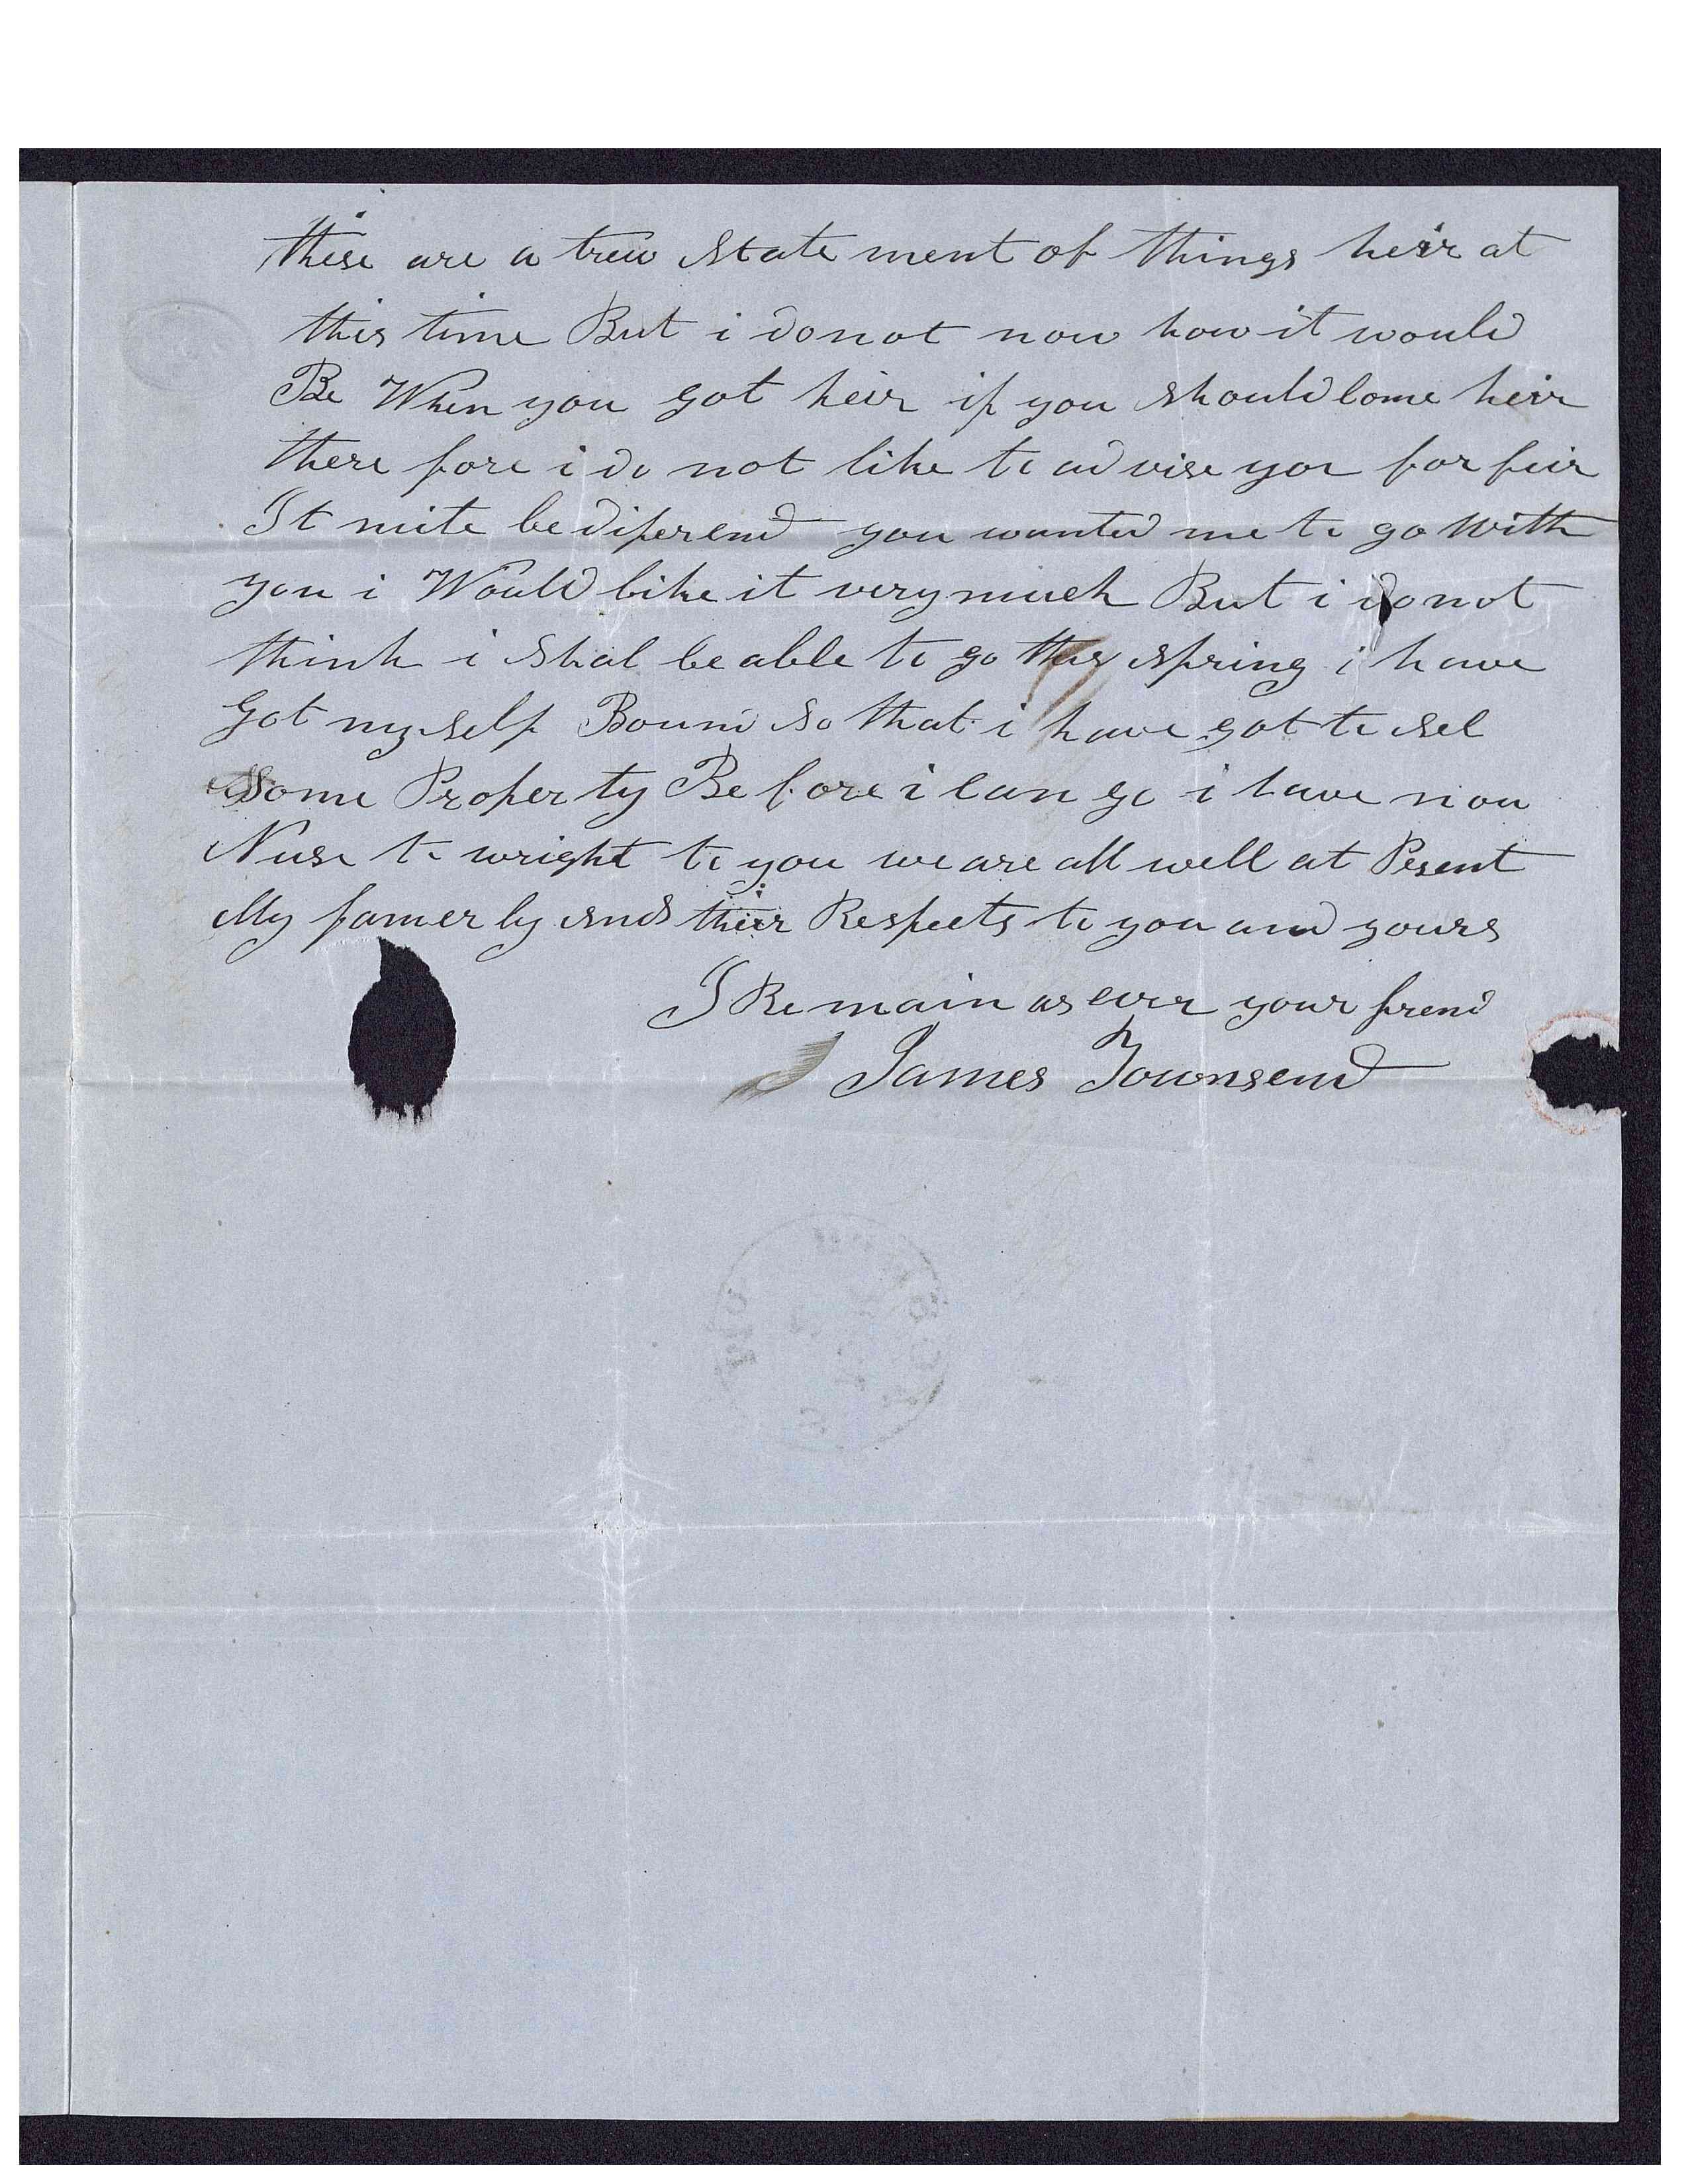 these are a trew State ment of things heir at
this time But i do not now how it would
Be When you got heir if you should Come heir
there fore i do not like to ad vise you for feir
It mite be diferend you wanted me to go With
you i Would like it very much But i do not
think i Shal be able to go this spring i have
Got my self Bound So that i have got to sel
Some Proper ty Be fore i Can go i have non
Nuse to wright to you we are all well at Pesent
My famer ly sends their Respects to you and yours
I Remain as ever your frend
James Townsend